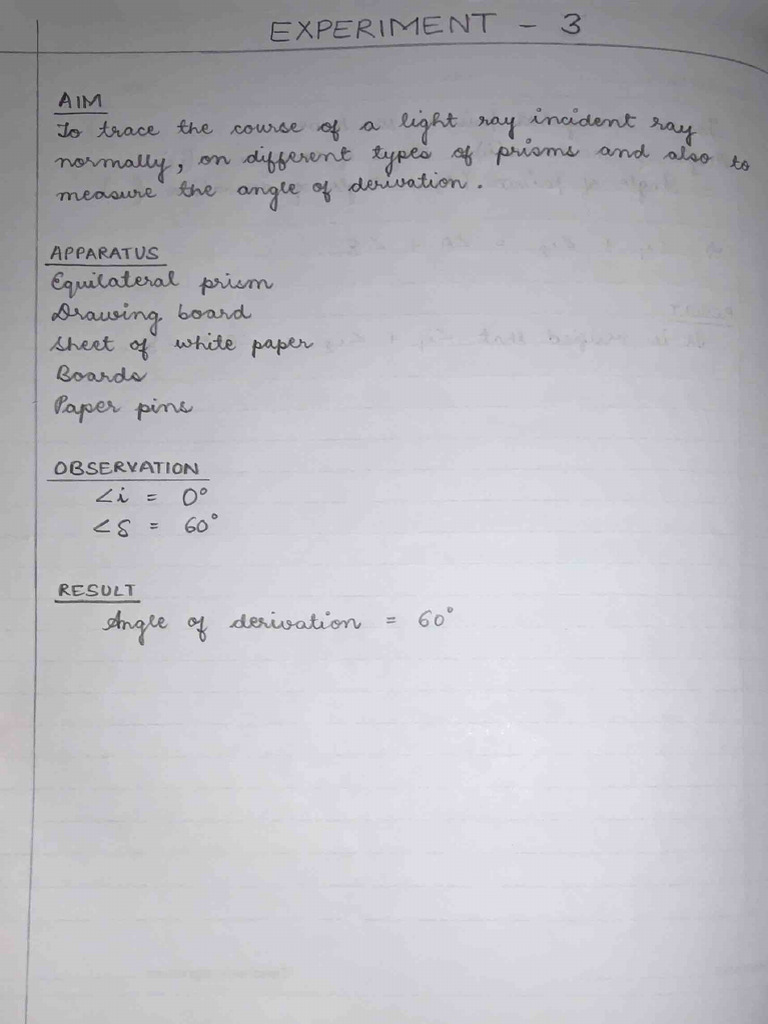 EXPERIMENT - 3
AIM
To trace the course of a light ray incident ray
normally, on different types of prisms and also to
measure the angle of derivation.
APPARATUS
Equilateral prism
Drawing board
Sheet of white paper
Boards
Paper pins
OBSERVATION
∠i = 0°
∠δ = 60°
RESULT
Angle of derivation = 60°